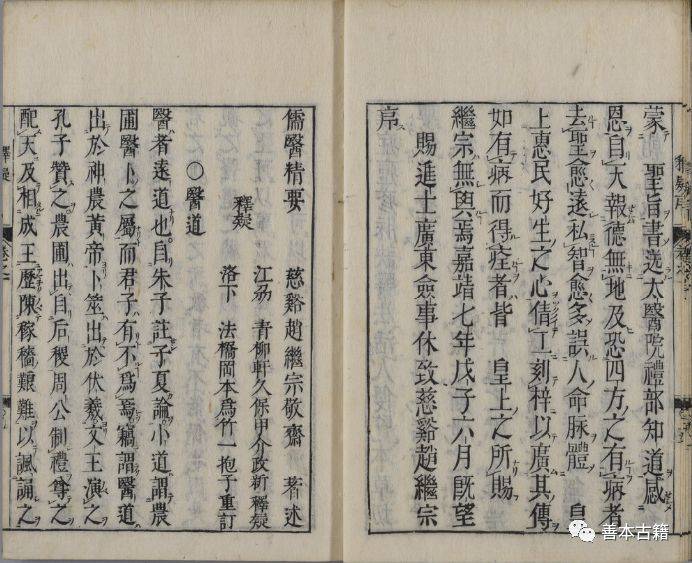 蒙　聖旨書送太醫院禮部知道感
恩自天報德無地及恐四方之有病者
去聖愈遠私智愈多誤人命脉體　皇
上惠民好生之心倩工刻梓以廣其傳
如有病而得痊者皆　皇上之所賜
繼宗無與焉嘉靖七年戊子六月既望
賜進士廣東僉事休致慈谿趙繼宗
序
儒醫精要　慈谿趙繼宗敬齋　著述
江劦　青柳軒久保甲介政新　釋疑
釋疑
洛下　法橋岡本爲竹一抱子重訂
○醫道
醫者遠道也自朱子註子夏論小道謂農
圃醫卜之屬而君子有不爲焉竊謂醫道
出於神農黃帝卜筮出於伏羲文王演之
孔子贊之農圃出自后稷周公制禮尊之
配天及相成王歷陳稼穡艱難以諷誦之
釋疑
善本古籍